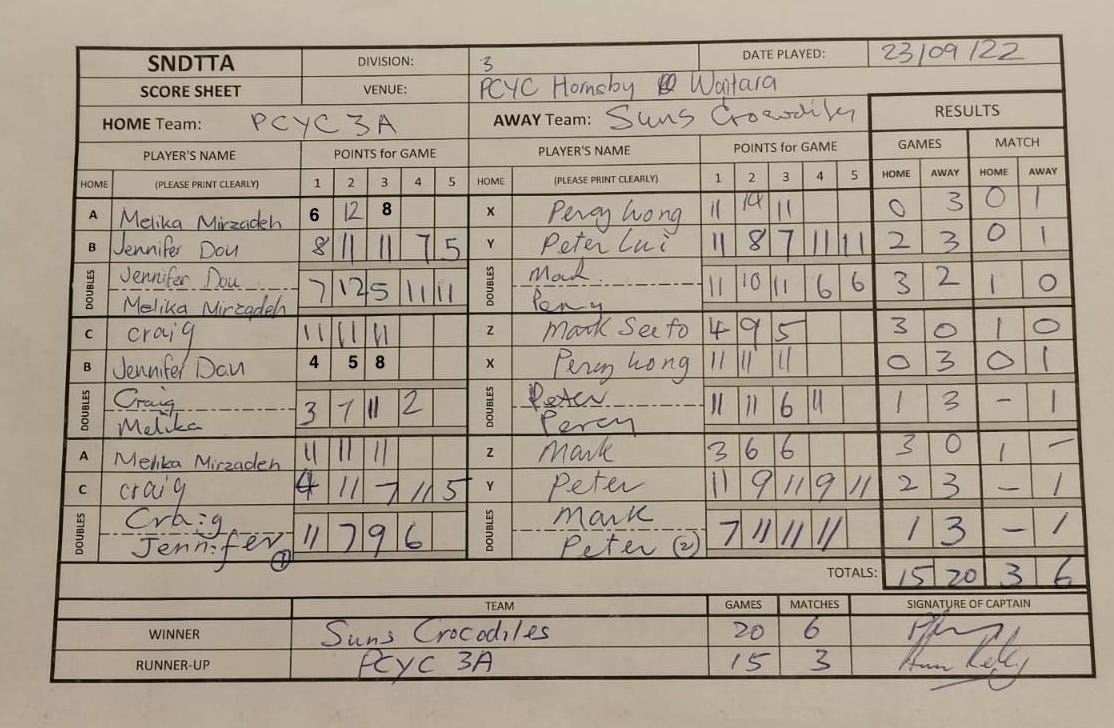 SNDTTA DIVISION: 3 DATE PLAYED: 23/09/22
SCORE SHEET VENUE: PCYC Hornsby Waitara
HOME Team: PCYC 3A AWAY Team: Suns Crocodiles RESULTS
PLAYER'S NAME POINTS for GAME PLAYER'S NAME POINTS for GAME GAMES MATCH
HOME (PLEASE PRINT CLEARLY) 1 2 3 4 5 HOME (PLEASE PRINT CLEARLY) 1 2 3 4 5 HOME AWAY HOME AWAY
A Melika Mirzadeh 6 12 8 X Percy Wong 11 14 11 0 3 0 1
B Jennifer Dou 8 11 11 7 5 Y Peter Lui 11 8 7 11 11 2 3 0 1
DOUBLES Jennifer Dou 7 12 5 11 11 DOUBLES Mark 11 10 11 6 6 3 2 1 0
Melika Mirzadeh Percy
C craig 11 11 11 Z Mark Seeto 4 9 5 3 0 1 0
B Jennifer Dou 4 5 8 X Percy Wong 11 11 11 0 3 0 1
DOUBLES Craig 3 7 11 2 DOUBLES Peter 11 11 6 11 1 3 - 1
Melika Percy
A Melika Mirzadeh 11 11 11 Z Mark 3 6 6 3 0 1 -
C craig 4 11 7 11 5 Y Peter 11 9 11 9 11 2 3 - 1
DOUBLES Craig 11 7 9 6 DOUBLES Mark 7 11 11 11 1 3 - 1
Jennifer (1) Peter (2)
TOTALS: 15 20 3 6
TEAM GAMES MATCHES SIGNATURE OF CAPTAIN
WINNER Suns Crocodiles 20 6
RUNNER-UP PCYC 3A 15 3